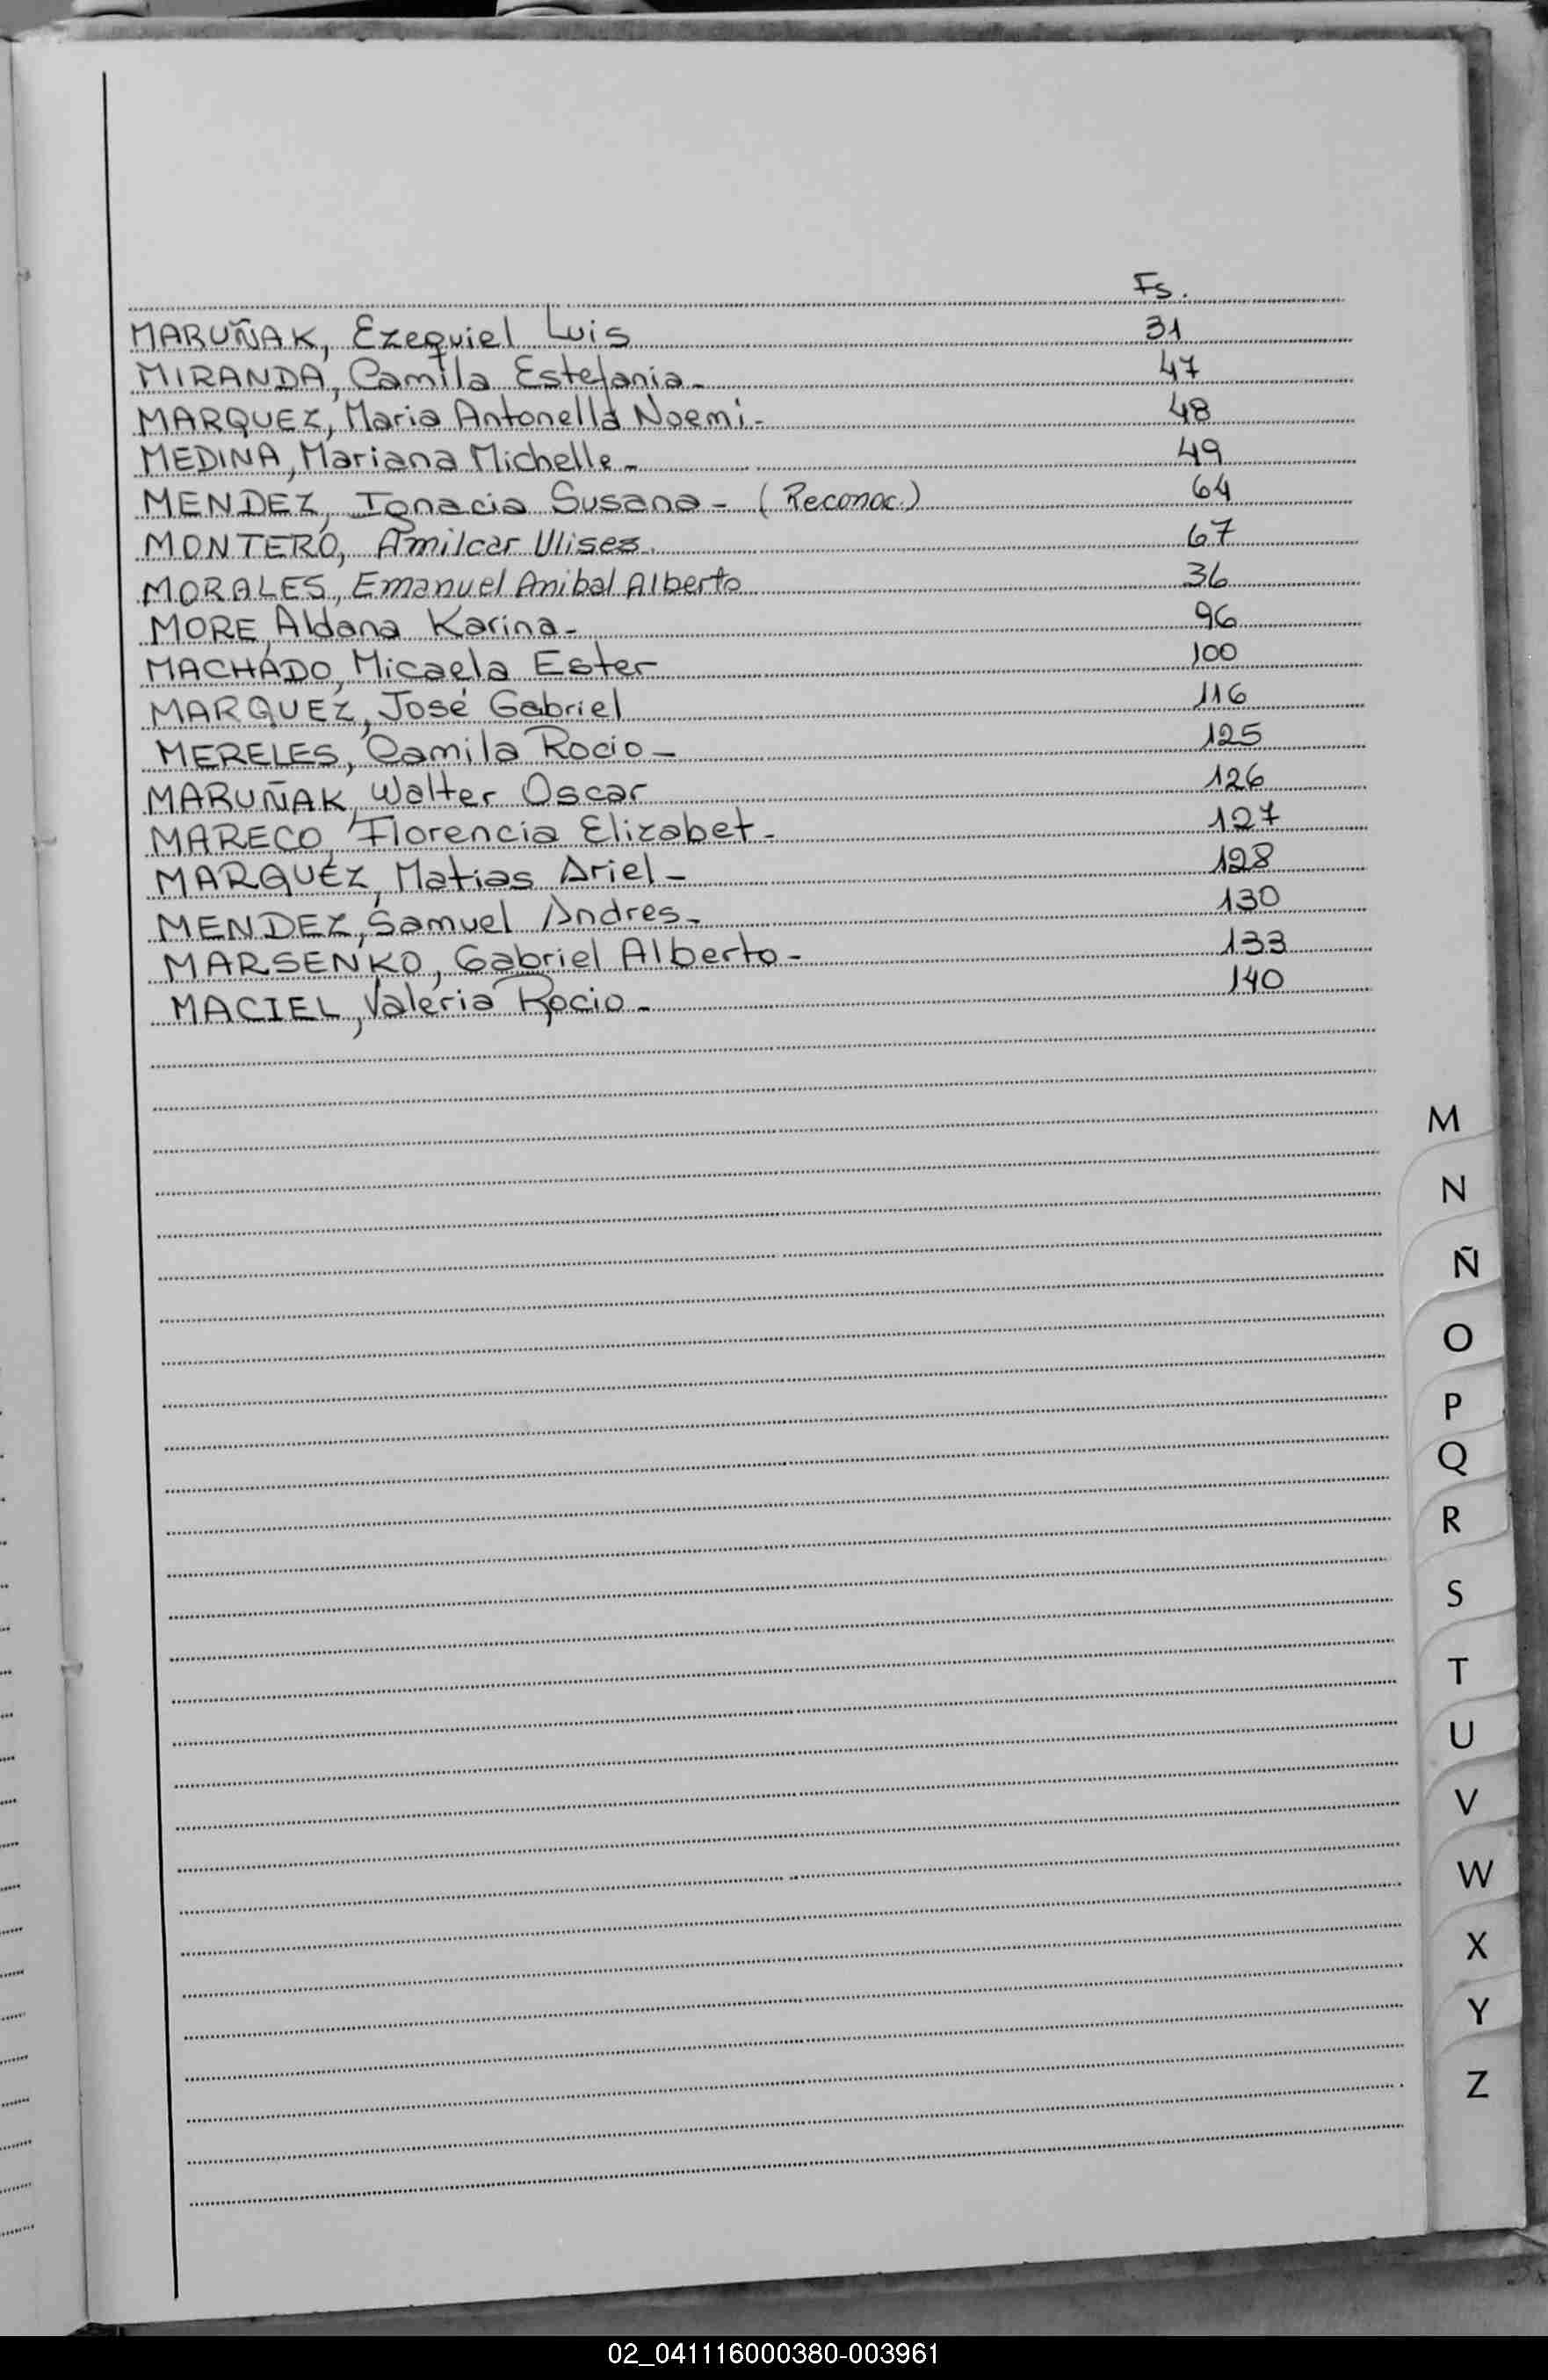 Fs.
MARUÑAK, Ezequiel Luis 31
MIRANDA, Camila Estefania- 47
MARQUEZ, Maria Antonella Noemi- 48
MEDINA, Mariana Michelle- 49
MENDEZ, Ignacia Susana- (Reconoc.) 64
MONTERO, Amilcar Ulises. 67
MORALES, Emanuel Anibal Alberto 36
MORE, Aldana Karina- 96
MACHADO, Micaela Ester 100
MARQUEZ, José Gabriel 116
MERELES, Camila Rocio- 125
MARUÑAK, Walter Oscar 126
MARECO, Florencia Elizabet- 127
MARQUEZ, Matias Ariel- 128
MENDEZ, Samuel Andres- 130
MARSENKO, Gabriel Alberto- 133
MACIEL, Valeria Rocio- 140
M
N
Ñ
O
P
Q
R
S
T
U
V
W
X
Y
Z
02_041116000380-003961